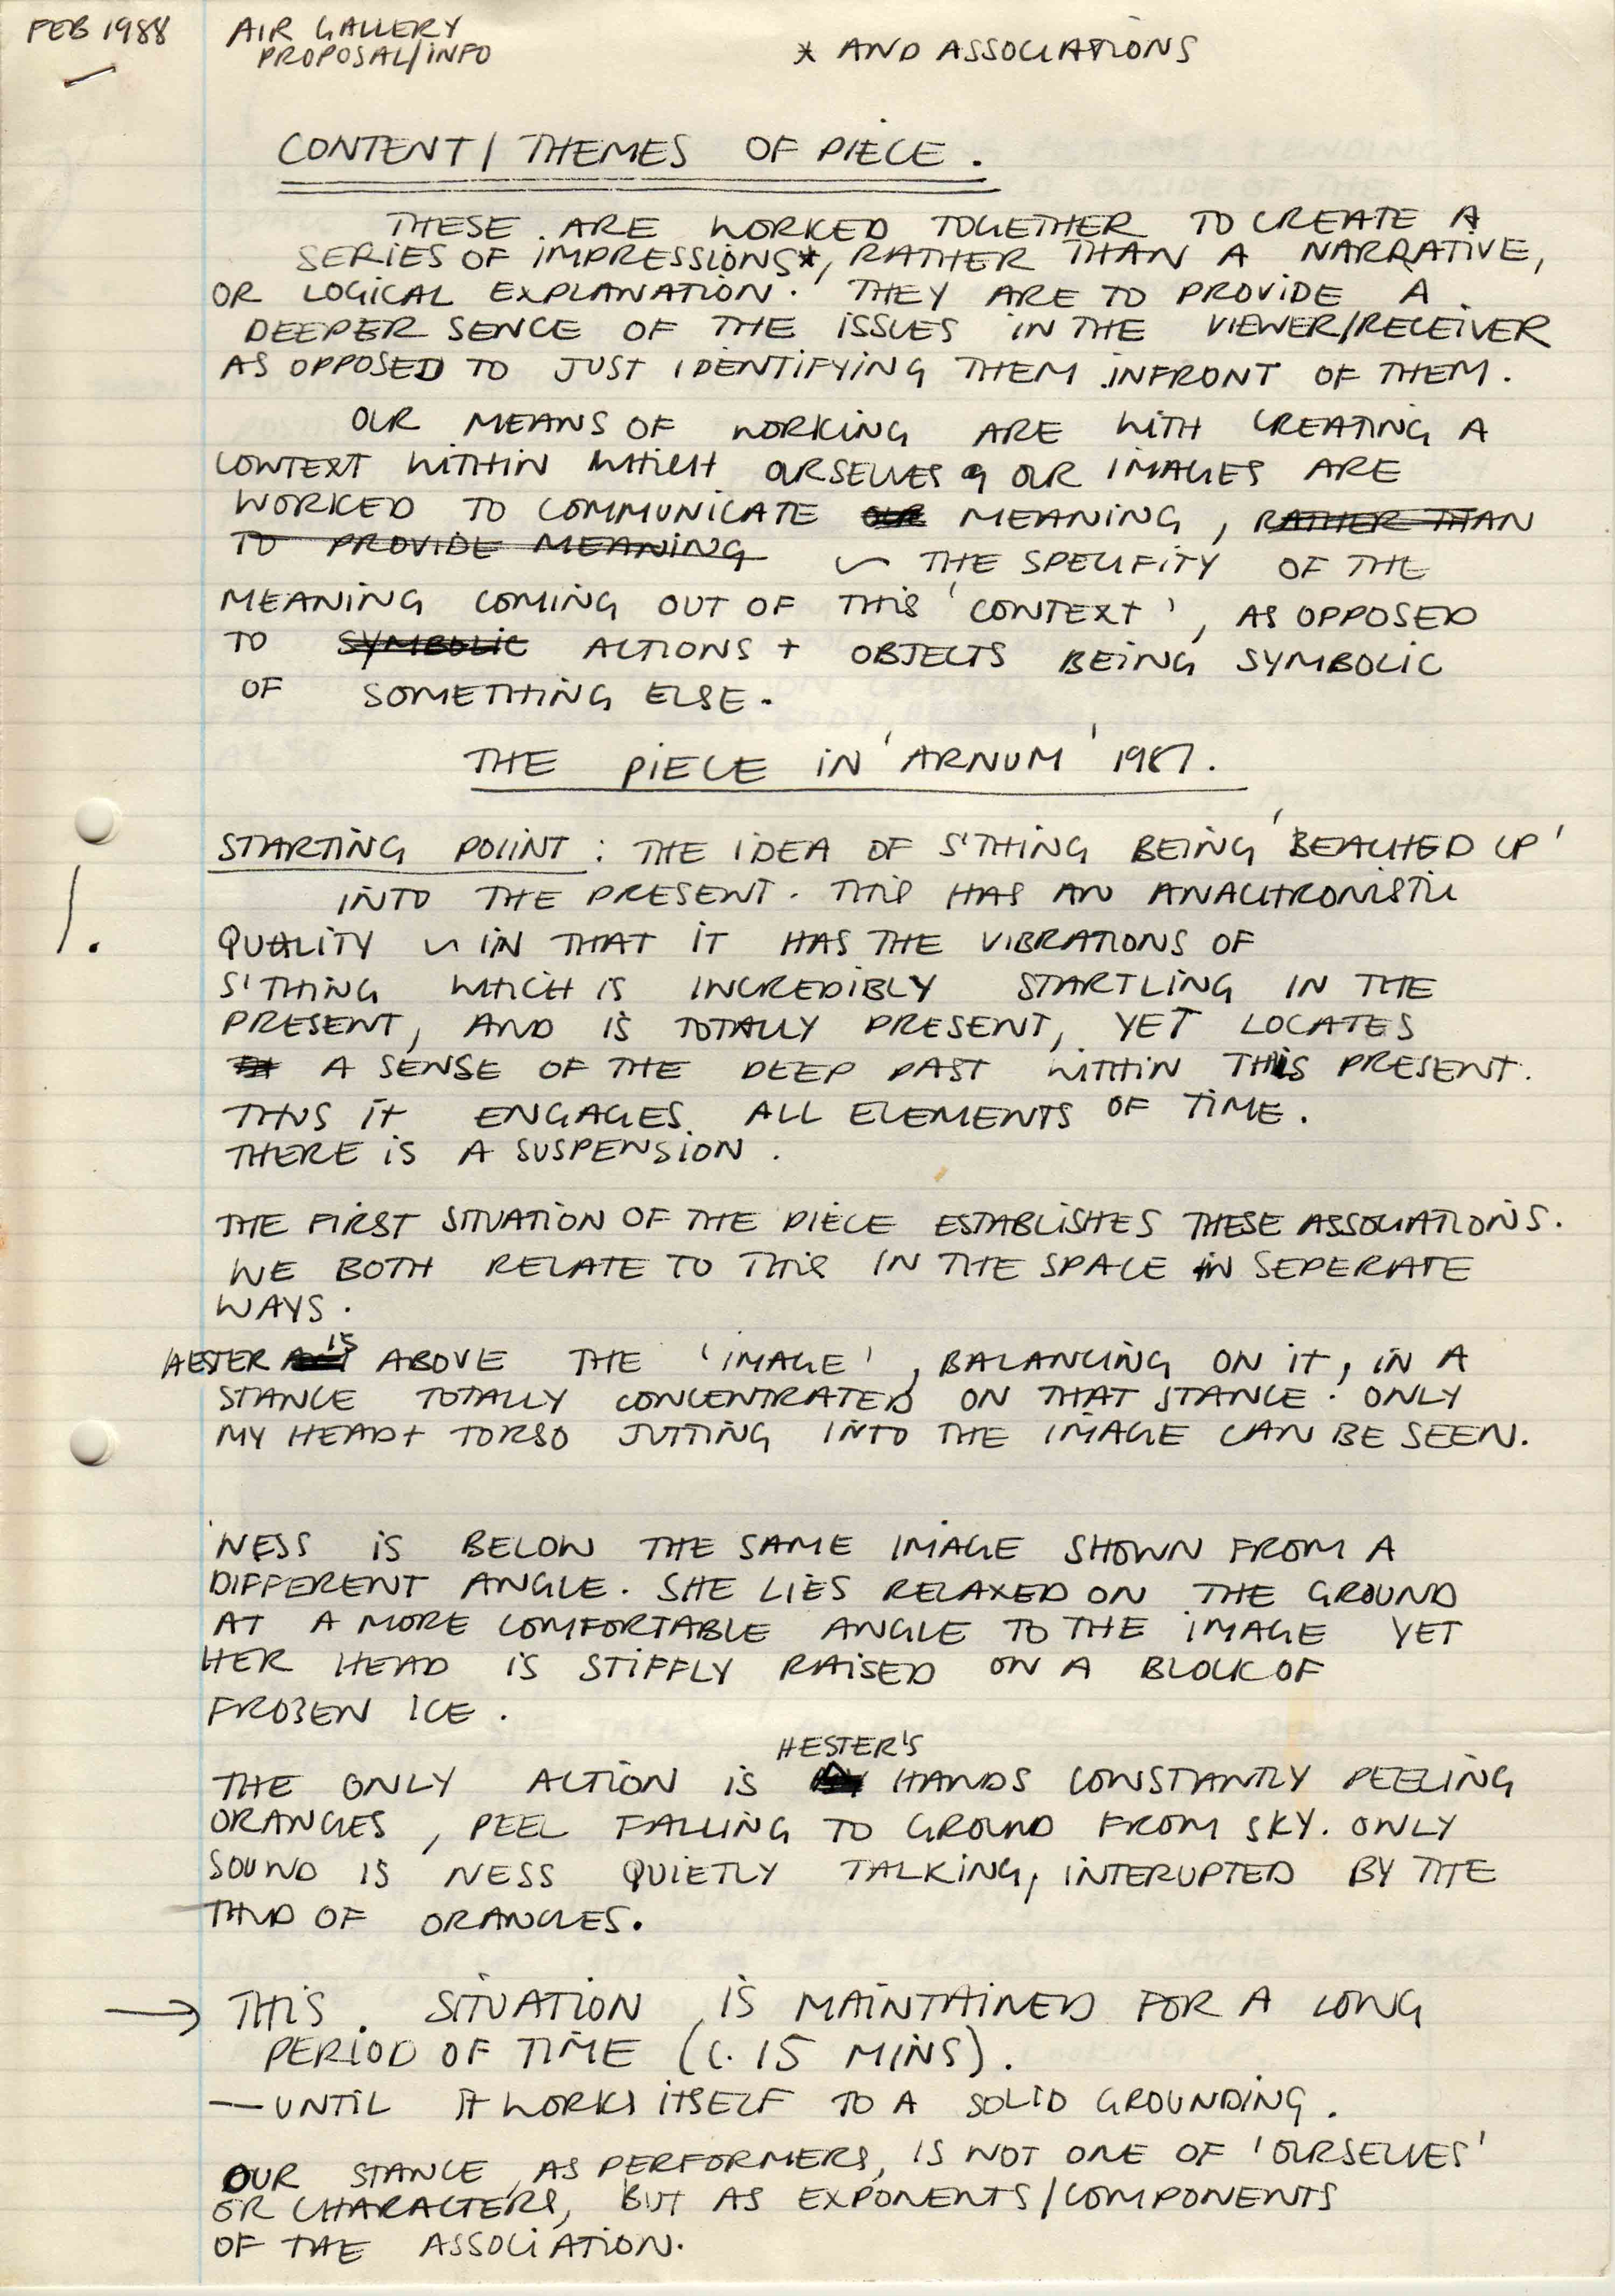 FEB 1988 AIR GALLERY
PROPOSAL/INFO
* AND ASSOCIATIONS
CONTENT/ THEMES OF PIECE.
THESE ARE WORKED TOGETHER TO CREATE A
SERIES OF IMPRESSIONS*, RATHER THAN A NARRATIVE,
OR LOGICAL EXPLANATION. THEY ARE TO PROVIDE A
DEEPER SENCE OF THE ISSUES IN THE VIEWER/RECEIVER
AS OPPOSED TO JUST IDENTIFYING THEM INFRONT OF THEM.
OUR MEANS OF WORKING ARE WITH CREATING A
CONTEXT WITHIN WHICH OURSELVES & OUR IMAGES ARE
WORKED TO COMMUNICATE OUR MEANING, RATHER THAN
TO PROVIDE MEANING ~ THE SPECIFITY OF THE
MEANING COMING OUT OF THIS 'CONTEXT', AS OPPOSED
TO SYMBOLIC ACTIONS + OBJECTS BEING SYMBOLIC
OF SOMETHING ELSE.
THE PIECE IN 'ARNUM' 1987.
STARTING POIINT: THE IDEA OF S'THING BEING 'BEACHED UP'
INTO THE PRESENT. THIS HAS AN ANACHRONISTIC
1. QUALITY ~ IN THAT IT HAS THE VIBRATIONS OF
S'THING WHICH IS INCREDIBLY STARTLING IN THE
PRESENT, AND IS TOTALLY PRESENT, YET LOCATES
A SENSE OF THE DEEP PAST WITHIN THIS PRESENT.
THUS IT ENGAGES ALL ELEMENTS OF TIME.
THERE IS A SUSPENSION.
THE FIRST SITUATION OF THE PIECE ESTABLISHES THESE ASSOCIATIONS.
WE BOTH RELATE TO THIS IN THE SPACE IN SEPERATE
WAYS.
HESTER IS ABOVE THE 'IMAGE', BALANCING ON IT, IN A
STANCE TOTALLY CONCENTRATED ON THAT STANCE. ONLY
MY HEAD + TORSO JUTTING INTO THE IMAGE CAN BE SEEN.
NESS IS BELOW THE SAME IMAGE SHOWN FROM A
DIFFERENT ANGLE. SHE LIES RELAXED ON THE GROUND
AT A MORE COMFORTABLE ANGLE TO THE IMAGE YET
HER HEAD IS STIFFLY RAISED ON A BLOCK OF
FROZEN ICE.
HESTER'S
THE ONLY ACTION IS HANDS CONSTANTLY PEELING
ORANGES, PEEL FALLING TO GROUND FROM SKY. ONLY
SOUND IS NESS QUIETLY TALKING, INTERUPTED BY THE
THUD OF ORANGES.
→ THIS SITUATION IS MAINTAINED FOR A LONG
PERIOD OF TIME (C. 15 MINS).
— UNTIL IT WORKS ITSELF TO A SOLID GROUNDING.
OUR STANCE, AS PERFORMERS, IS NOT ONE OF 'OURSELVES'
OR CHARACTERS, BUT AS EXPONENTS/COMPONENTS
OF THE ASSOCIATION.